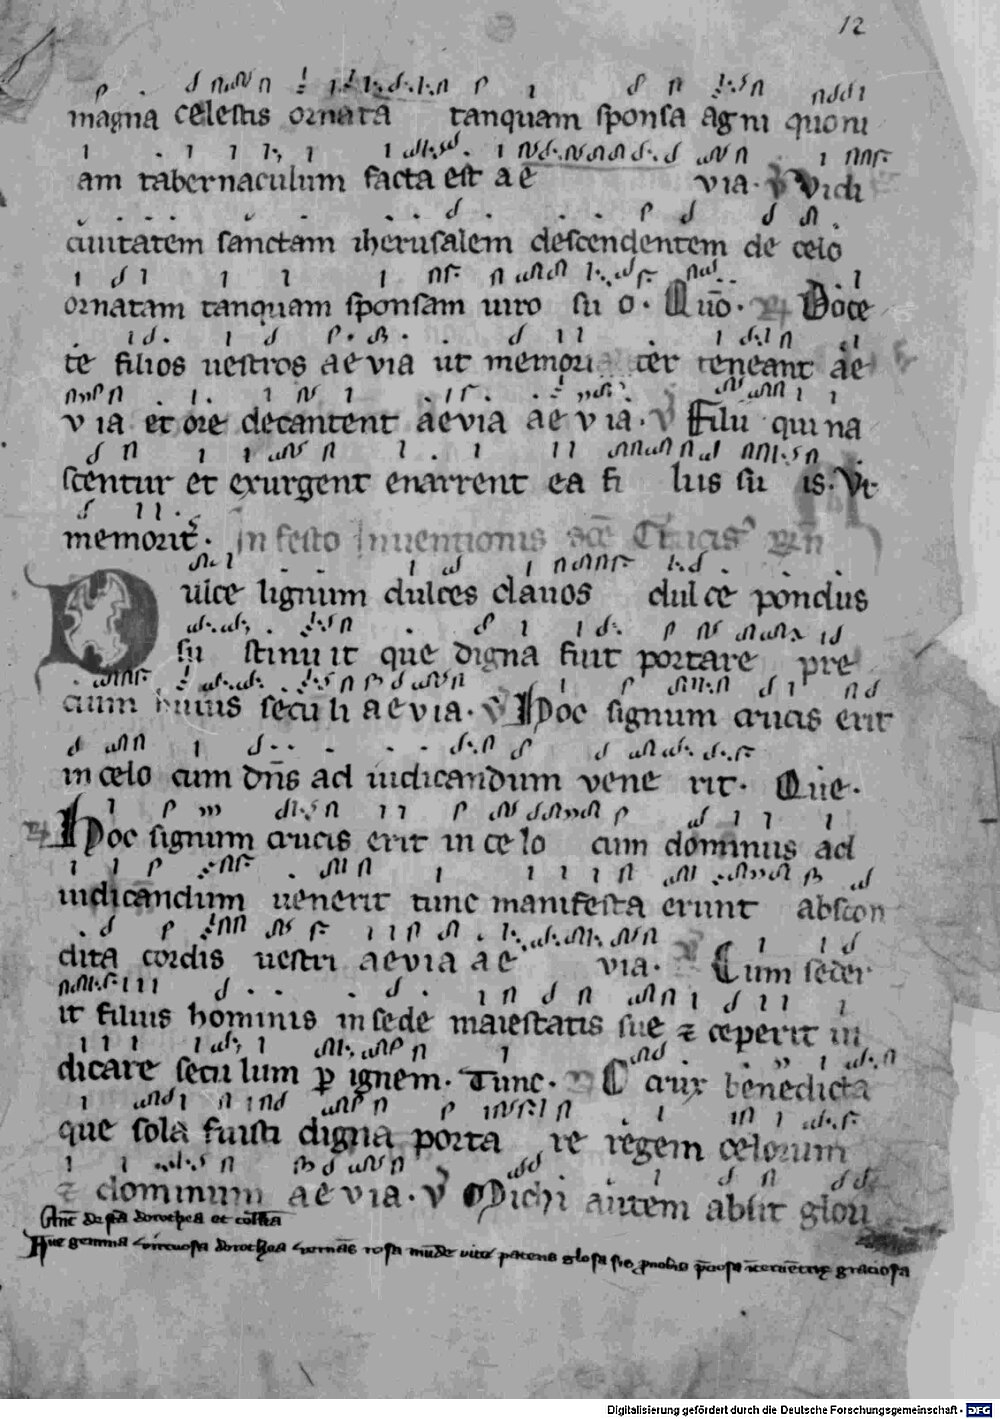 12
magna celestis ornata tanquam sponsa agni quoni
am tabernaculum facta est ae via. ℣ Vidi
ciuitatem sanctam iherusalem descendentem de celo
ornatam tanquam sponsam uiro su o. Quō. ℟ Doce
te filios uestros aevia ut memori ter teneant ae
v ia et ore decantent aevia ae v ia. ℣ Filii qui na
scentur et exurgent enarrent ea fi liis su is. Vt
memorit̄. In festo Inuentionis sc̄e Crucis
Dulce lignum dulces clauos dulce pondus
su stinu it que digna fuit portare pre
cium huius seculi aevia. ℣ Hoc signum crucis erit
in celo cum dn̄s ad iudicandum vene rit. Que.
℟ Hoc signum crucis erit in ce lo cum dominus ad
iudicandum uenerit tunc manifesta erunt abscon
dita cordis uestri aevia ae via. ℣ Cum seder
it filius hominis in sede maiestatis sue ⁊ ceperit iu
dicare seculum p̲ ignem. Tunc. ℟ Crux benedicta
que sola fuisti digna porta re regem celorum
⁊ dominum aevia. ℣ Michi autem absit glori
de dorothea et
Aue gemma virtuosa dorothea rosa graciosa
Digitalisierung gefördert durch die Deutsche Forschungsgemeinschaft - DFG